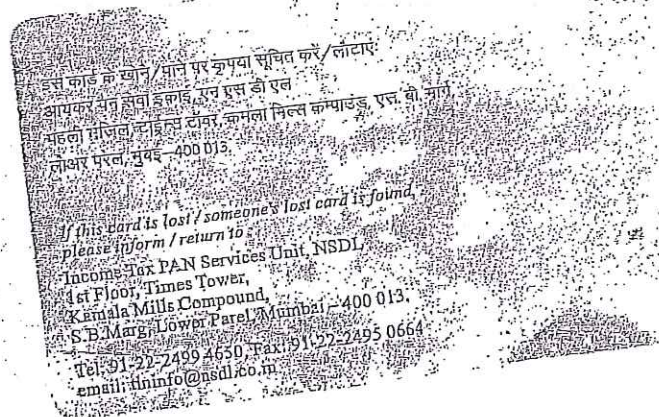 इस कार्ड के खोने/पाने पर कृपया सूचित करें/लौटाएं:
आयकर पैन सेवा इकाई, एन एस डी एल
पहली मंजिल, टाईम्स टॉवर, कमला मिल्स कम्पाउंड, एस. बी. मार्ग,
लोअर परेल, मुंबई - 400 013.
If this card is lost / someone's lost card is found,
please inform / return to :
Income Tax PAN Services Unit, NSDL
1st Floor, Times Tower,
Kamala Mills Compound,
S.B.Marg, Lower Parel, Mumbai - 400 013.
Tel: 91-22-2499 4650, Fax: 91-22-2495 0664
email: tininfo@nsdl.co.in